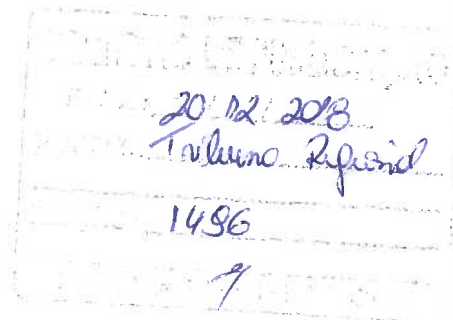 20 12 2018
Tribuna Regional
1496